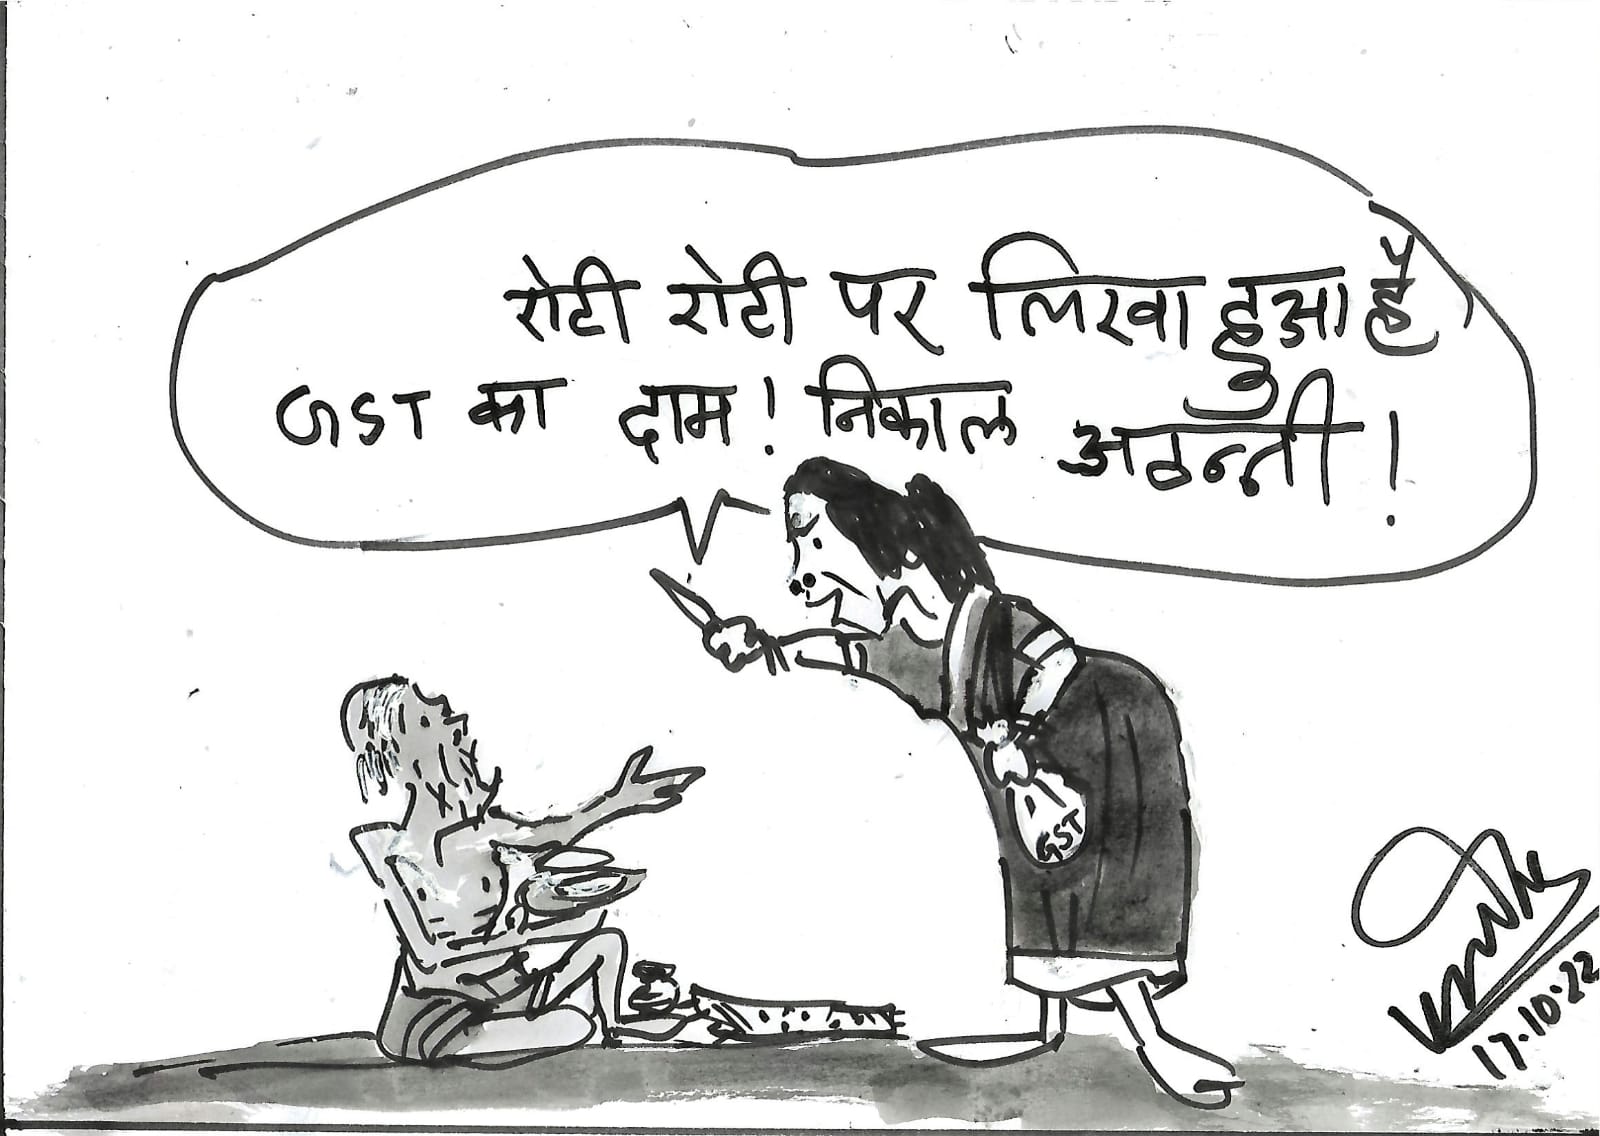 रोटी रोटी पर लिखा हुआ है
GST का दाम! निकाल अठन्नी!
GST
17.10.22